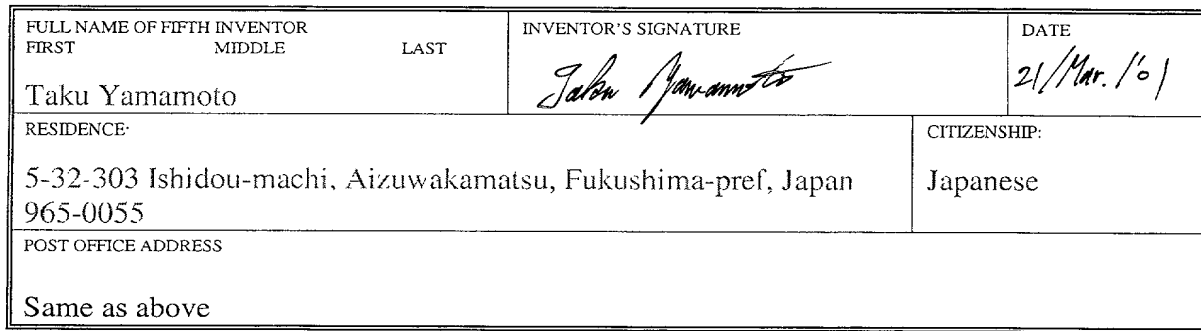 FULL NAME OF FIFTH INVENTOR
FIRST MIDDLE LAST
Taku Yamamoto
INVENTOR'S SIGNATURE
Taku Yamamoto
DATE
21/Mar. /'01
RESIDENCE:
5-32-303 Ishidou-machi, Aizuwakamatsu, Fukushima-pref, Japan
965-0055
CITIZENSHIP:
Japanese
POST OFFICE ADDRESS
Same as above